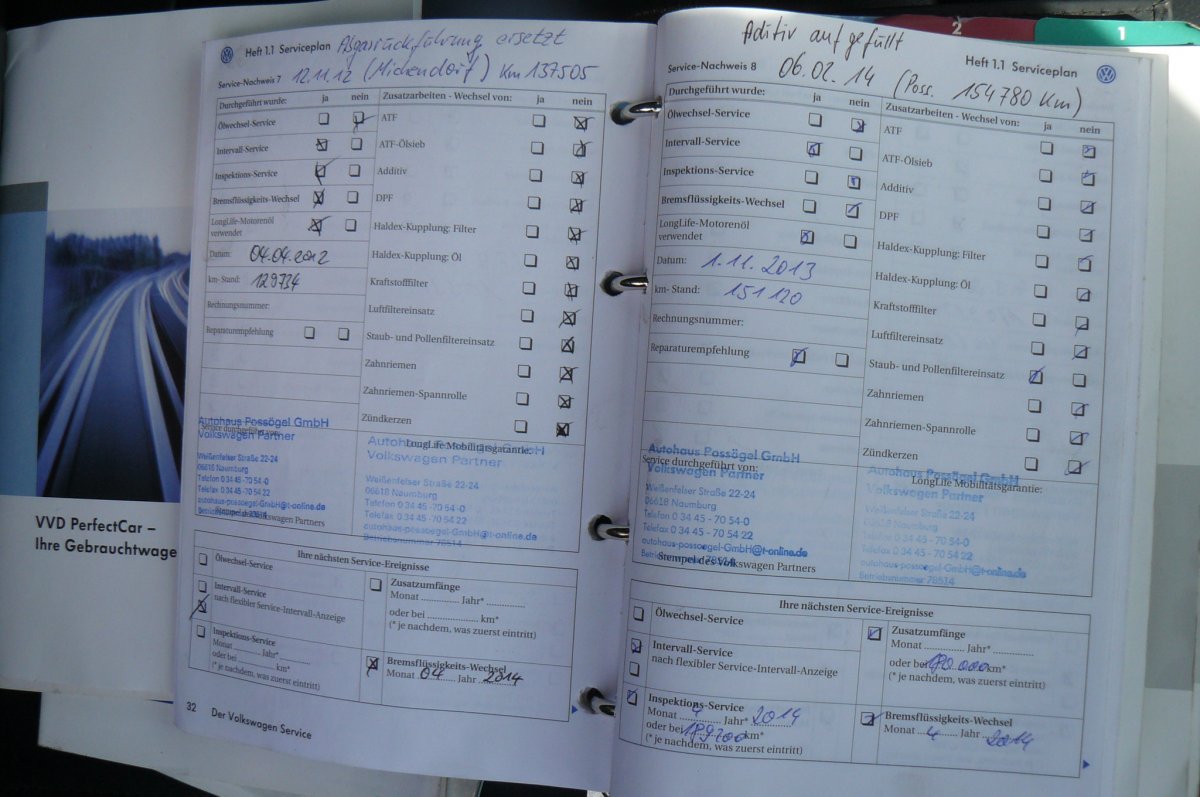 2
1
VVD PerfectCar –
Ihre Gebrauchtwage
Heft 1.1 Serviceplan
Abgasrückführung ersetzt
Service-Nachweis 7
12.11.12 (Michendorf) Km 137505
Durchgeführt wurde: ja nein
Zusatzarbeiten - Wechsel von: ja nein
Ölwechsel-Service
ATF
Intervall-Service
ATF-Ölsieb
Inspektions-Service
Additiv
Bremsflüssigkeits-Wechsel
DPF
LongLife-Motorenöl
verwendet
Haldex-Kupplung: Filter
Datum: 04.04.2012
Haldex-Kupplung: Öl
km-Stand: 129734
Kraftstofffilter
Rechnungsnummer:
Luftfiltereinsatz
Reparaturempfehlung
Staub- und Pollenfiltereinsatz
Zahnriemen
Zahnriemen-Spannrolle
Zündkerzen
Autohaus Possögel GmbH
Service durchgeführt von:
Volkswagen Partner
Weißenfelser Straße 22-24
06618 Naumburg
Telefon 0 34 45 - 70 54-0
Telefax 0 34 45 - 70 54 22
autohaus-possoegel-GmbH@t-online.de
Stempel des Volkswagen Partners
LongLife Mobilitätsgarantie:
Volkswagen Partner
Weißenfelser Straße 22-24
06618 Naumburg
Telefon 0 34 45 - 70 54-0
Telefax 0 34 45 - 70 54 22
autohaus-possoegel-GmbH@t-online.de
Betriebsnummer 78514
Ihre nächsten Service-Ereignisse
Ölwechsel-Service
Intervall-Service
nach flexibler Service-Intervall-Anzeige
Inspektions-Service
Monat ........... Jahr* ...........
oder bei ........... km*
(* je nachdem, was zuerst eintritt)
Zusatzumfänge
Monat ........... Jahr* ...........
oder bei ........... km*
(* je nachdem, was zuerst eintritt)
Bremsflüssigkeits-Wechsel
Monat 04 Jahr 2014
32 Der Volkswagen Service
Aditiv aufgefüllt
Heft 1.1 Serviceplan
Service-Nachweis 8
06.02.14 (Poss. 154780 Km)
Durchgeführt wurde: ja nein
Zusatzarbeiten - Wechsel von: ja nein
Ölwechsel-Service
ATF
Intervall-Service
ATF-Ölsieb
Inspektions-Service
Additiv
Bremsflüssigkeits-Wechsel
DPF
LongLife-Motorenöl
verwendet
Haldex-Kupplung: Filter
Datum: 1.11.2013
Haldex-Kupplung: Öl
km- Stand: 151120
Kraftstofffilter
Rechnungsnummer:
Luftfiltereinsatz
Reparaturempfehlung
Staub- und Pollenfiltereinsatz
Zahnriemen
Zahnriemen-Spannrolle
Zündkerzen
Autohaus Possögel GmbH
Service durchgeführt von:
Volkswagen Partner
Weißenfelser Straße 22-24
06618 Naumburg
Telefon 0 34 45 - 70 54-0
Telefax 0 34 45 - 70 54 22
autohaus-possoegel-GmbH@t-online.de
Stempel des Volkswagen Partners
Autohaus Possögel GmbH
LongLife Mobilitätsgarantie:
Volkswagen Partner
Weißenfelser Straße 22-24
06618 Naumburg
Telefon 0 34 45 - 70 54-0
Telefax 0 34 45 - 70 54 22
autohaus-possoegel-GmbH@t-online.de
Betriebsnummer 78514
Ihre nächsten Service-Ereignisse
Ölwechsel-Service
Intervall-Service
nach flexibler Service-Intervall-Anzeige
Inspektions-Service
Monat 4 Jahr* 2014
oder bei km*
(* je nachdem, was zuerst eintritt)
Zusatzumfänge
Monat ........... Jahr* ...........
oder bei km*
(* je nachdem, was zuerst eintritt)
Bremsflüssigkeits-Wechsel
Monat 4 Jahr 2014